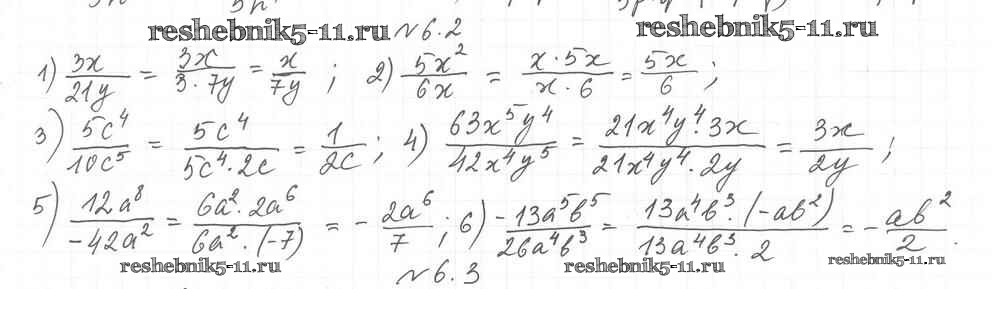 reshebnik5-11.ru №6.2 reshebnik5-11.ru
1) 3x/21y = 3x/3·7y = x/7y ; 2) 5x²/6x = x·5x/x·6 = 5x/6 ;
3) 5c⁴/10c⁵ = 5c⁴/5c⁴·2c = 1/2c ; 4) 63x⁵y⁴/42x⁴y⁵ = 21x⁴y⁴·3x/21x⁴y⁴·2y = 3x/2y ;
5) 12a⁸/-42a² = 6a²·2a⁶/6a²·(-7) = - 2a⁶/7 ; 6) -13a⁵b⁵/26a⁴b³ = 13a⁴b³·(-ab²)/13a⁴b³·2 = - ab²/2 .
reshebnik5-11.ru №6.3 reshebnik5-11.ru reshebnik5-11.ru